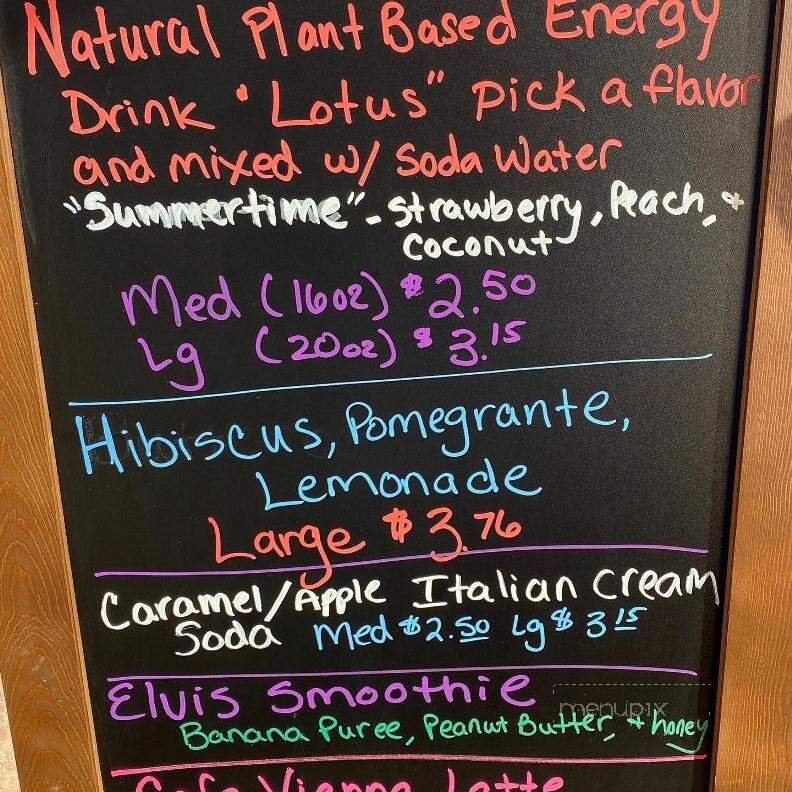 Natural Plant Based Energy
Drink "Lotus" pick a flavor
and mixed w/ Soda Water
"Summertime" - Strawberry, Peach, +
Coconut
Med (16oz) $2.50
Lg (20oz) $3.15
Hibiscus, Pomegrante,
Lemonade
Large $3.76
Caramel/Apple Italian Cream
Soda Med $2.50 Lg $3.15
Elvis Smoothie
menupix
Banana Puree, Peanut Butter, + honey
Cafe Vienna Latte